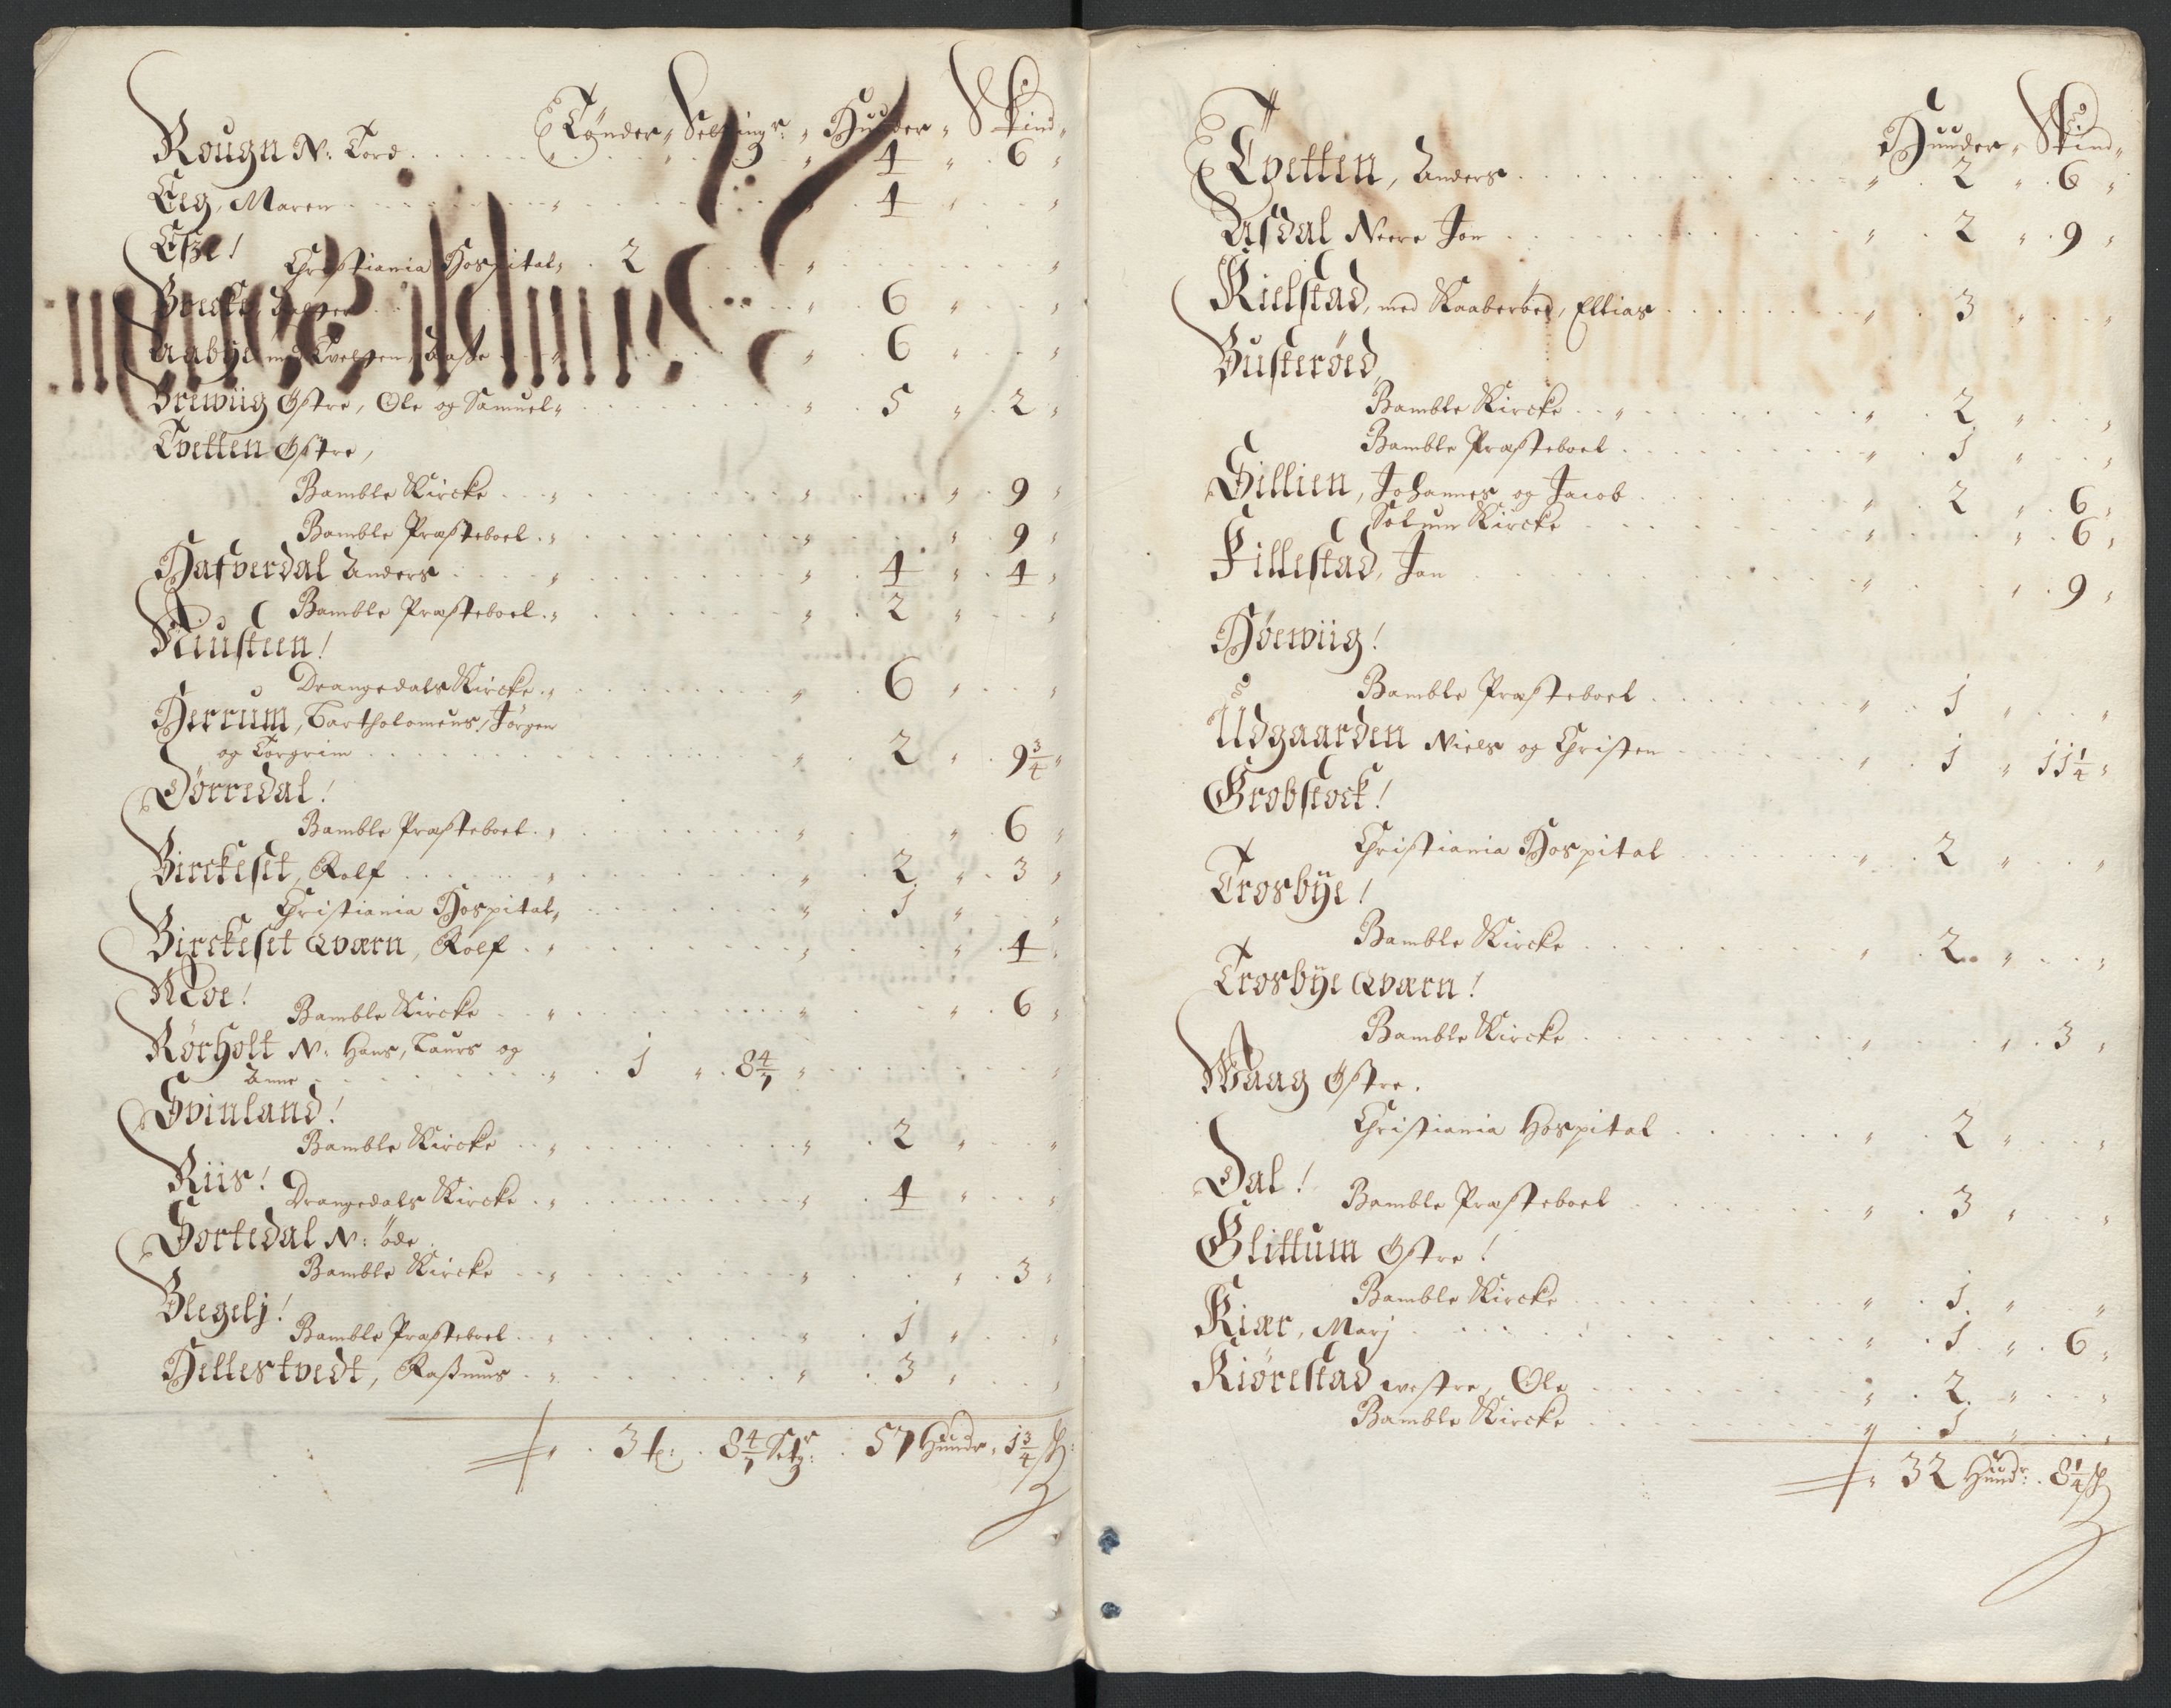 Tønder, Setting r: , Huuder, Skind,
Rougn N: Tord . . . 4 , 6 ,
Teg, Maren . . . 4 , ,
Christiania Hospital, . 2 . . . ,
. . . 6 , ,
Aabÿe med . . . 6 , ,
Brewiig Østre, Ole og Samuel, . . . 5 , 2 ,
Tvetten Østre,
Bamble Kircke . . . 9 ,
Bamble Præsteboel . . . 9 ,
Hafverdal Anders . . . 4 , 4 ,
Bamble Præsteboel . . . 2 , ,
Niusteen!
Drangedals Kircke . . . 6 , ,
Herrum, Bartholomeus, Jörgen
og Torgrim . . . 2 , 9 3/4 ,
Dörredal!
Bamble Præsteboel . . . 6 ,
Birckeset, Rolf . . . 2 , 3 ,
Christiania Hospital, . . . 1 , ,
Birckeset Qværn, Rolf . . . 4 ,
Moe!
Bamble Kircke . . . 6 ,
Rörholt N: Hans, Laurs og
Anne . . . 1 , 8 4/7 , . . .
Svinland!
Bamble Kircke . . . 2 , ,
Riis!
Drangedals Kircke . . . 4 , ,
Sortedal N: öde
Bamble Kircke . . . 3 ,
Blegelj!
Bamble Præsteboel . . . 1 , ,
Hellestvedt, Rasmus . . . 3 , ,
3 t: . 8 4/7 Setgr: . 57 Huudr , 1 3/4 sk:
Huuder, Skind,
Tvetten, Anders . . . 2 , 6 ,
Asdal Neere Jon . . . 2 , 9 ,
Kielstad, med Raaberöed, Ellias . . . 3 , ,
Busteröed,
Bamble Kircke . . . 2 , ,
Bamble Præsteboel . . . 1 , ,
Sillien, Johannes og Jacob . . . 2 , 6 ,
Solum Kircke . . . 6 ,
Fillestad, Jon . . . 9 ,
Höewiig!
Bamble Præsteboel . . . 1 , ,
Udgaarden Niels og Christen . . . 1 , 11 1/4 ,
Grobstock!
Christiania Hospital . . . 2 , ,
Trosbÿe!
Bamble Kircke . . . 2 , ,
Trosbÿe Qværn!
Bamble Kircke . . . 3 ,
Waag Østre.
Christiania Hospital . . . 2 , ,
Dal!
Bamble Præsteboel . . . 3 , ,
Glittum Østre!
Bamble Kircke . . . 1 , ,
Kiær, Marj . . . 1 , 6 ,
Kiörestad westre, Ole . . . 2 , ,
Bamble Kircke . . . 1 , ,
32 Huudr: . 8 1/4 sk